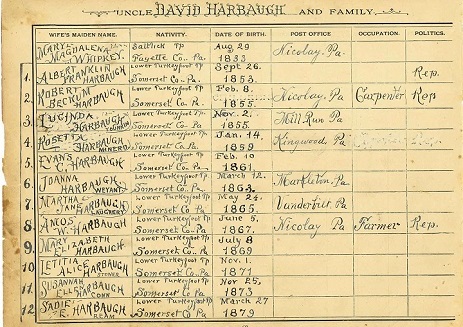 UNCLE DAVID HARBAUGH AND FAMILY.
WIFE'S MAIDEN NAME. NATIVITY. DATE OF BIRTH. POST OFFICE OCCUPATION. POLITICS.
MARY MAGDALENA WHIPKEY Saltlick Tp Fayette Co. Pa. Aug 29 1833 Nicolay. Pa.
1. ALBERT FRANKLIN HARBAUGH Lower Turkeyfoot Tp Somerset Co. Pa. Sept 26. 1853. Rep.
2. ROBERT BECKUM HARBAUGH Lower Turkeyfoot Tp Somerset Co. Pa. Feb. 8. 1855. Nicolay, Pa Carpenter Rep
3. LUCINDA HARBAUGH Lower Turkeyfoot Tp Somerset Co. Pa. Nov. 2. 1855. Mill Run Pa
4. ROSETTA HARBAUGH MINERD Lower Turkeyfoot Tp Somerset Co. Pa. Jan. 14. 1859 Kingwood. Pa
5. EVANS C. HARBAUGH Lower Turkeyfoot Tp Somerset Co. Pa. Feb. 10 1861
6. JOANNA HARBAUGH WEYANT Lower Turkeyfoot Tp Somerset Co. Pa. March 12. 1863. Markleton. Pa
7. MARTHA JANE HARBAUGH LAUGHERY Lower Turkeyfoot Tp Somerset Co. Pa May 24. 1865. Vanderbilt. Pa
8. AMOS W. HARBAUGH Lower Turkeyfoot Tp Somerset Co. Pa. June 5. 1867. Nicolay Pa Farmer Rep.
9. MARY ELIZABETH HARBAUGH Lower Turkeyfoot Tp Somerset Co. Pa July 8 1869
10. LETITIA ALICE HARBAUGH Lower Turkeyfoot Tp Somerset Co. Pa Nov. 1. 1871
11. SUSANNAH ELLEN HARBAUGH COHN Lower Turkeyfoot Tp Somerset Co. Pa Nov 25, 1873
12 SADIE E. HARBAUGH BEAM Lower Turkeyfoot Tp Somerset Co. Pa March 27 1879